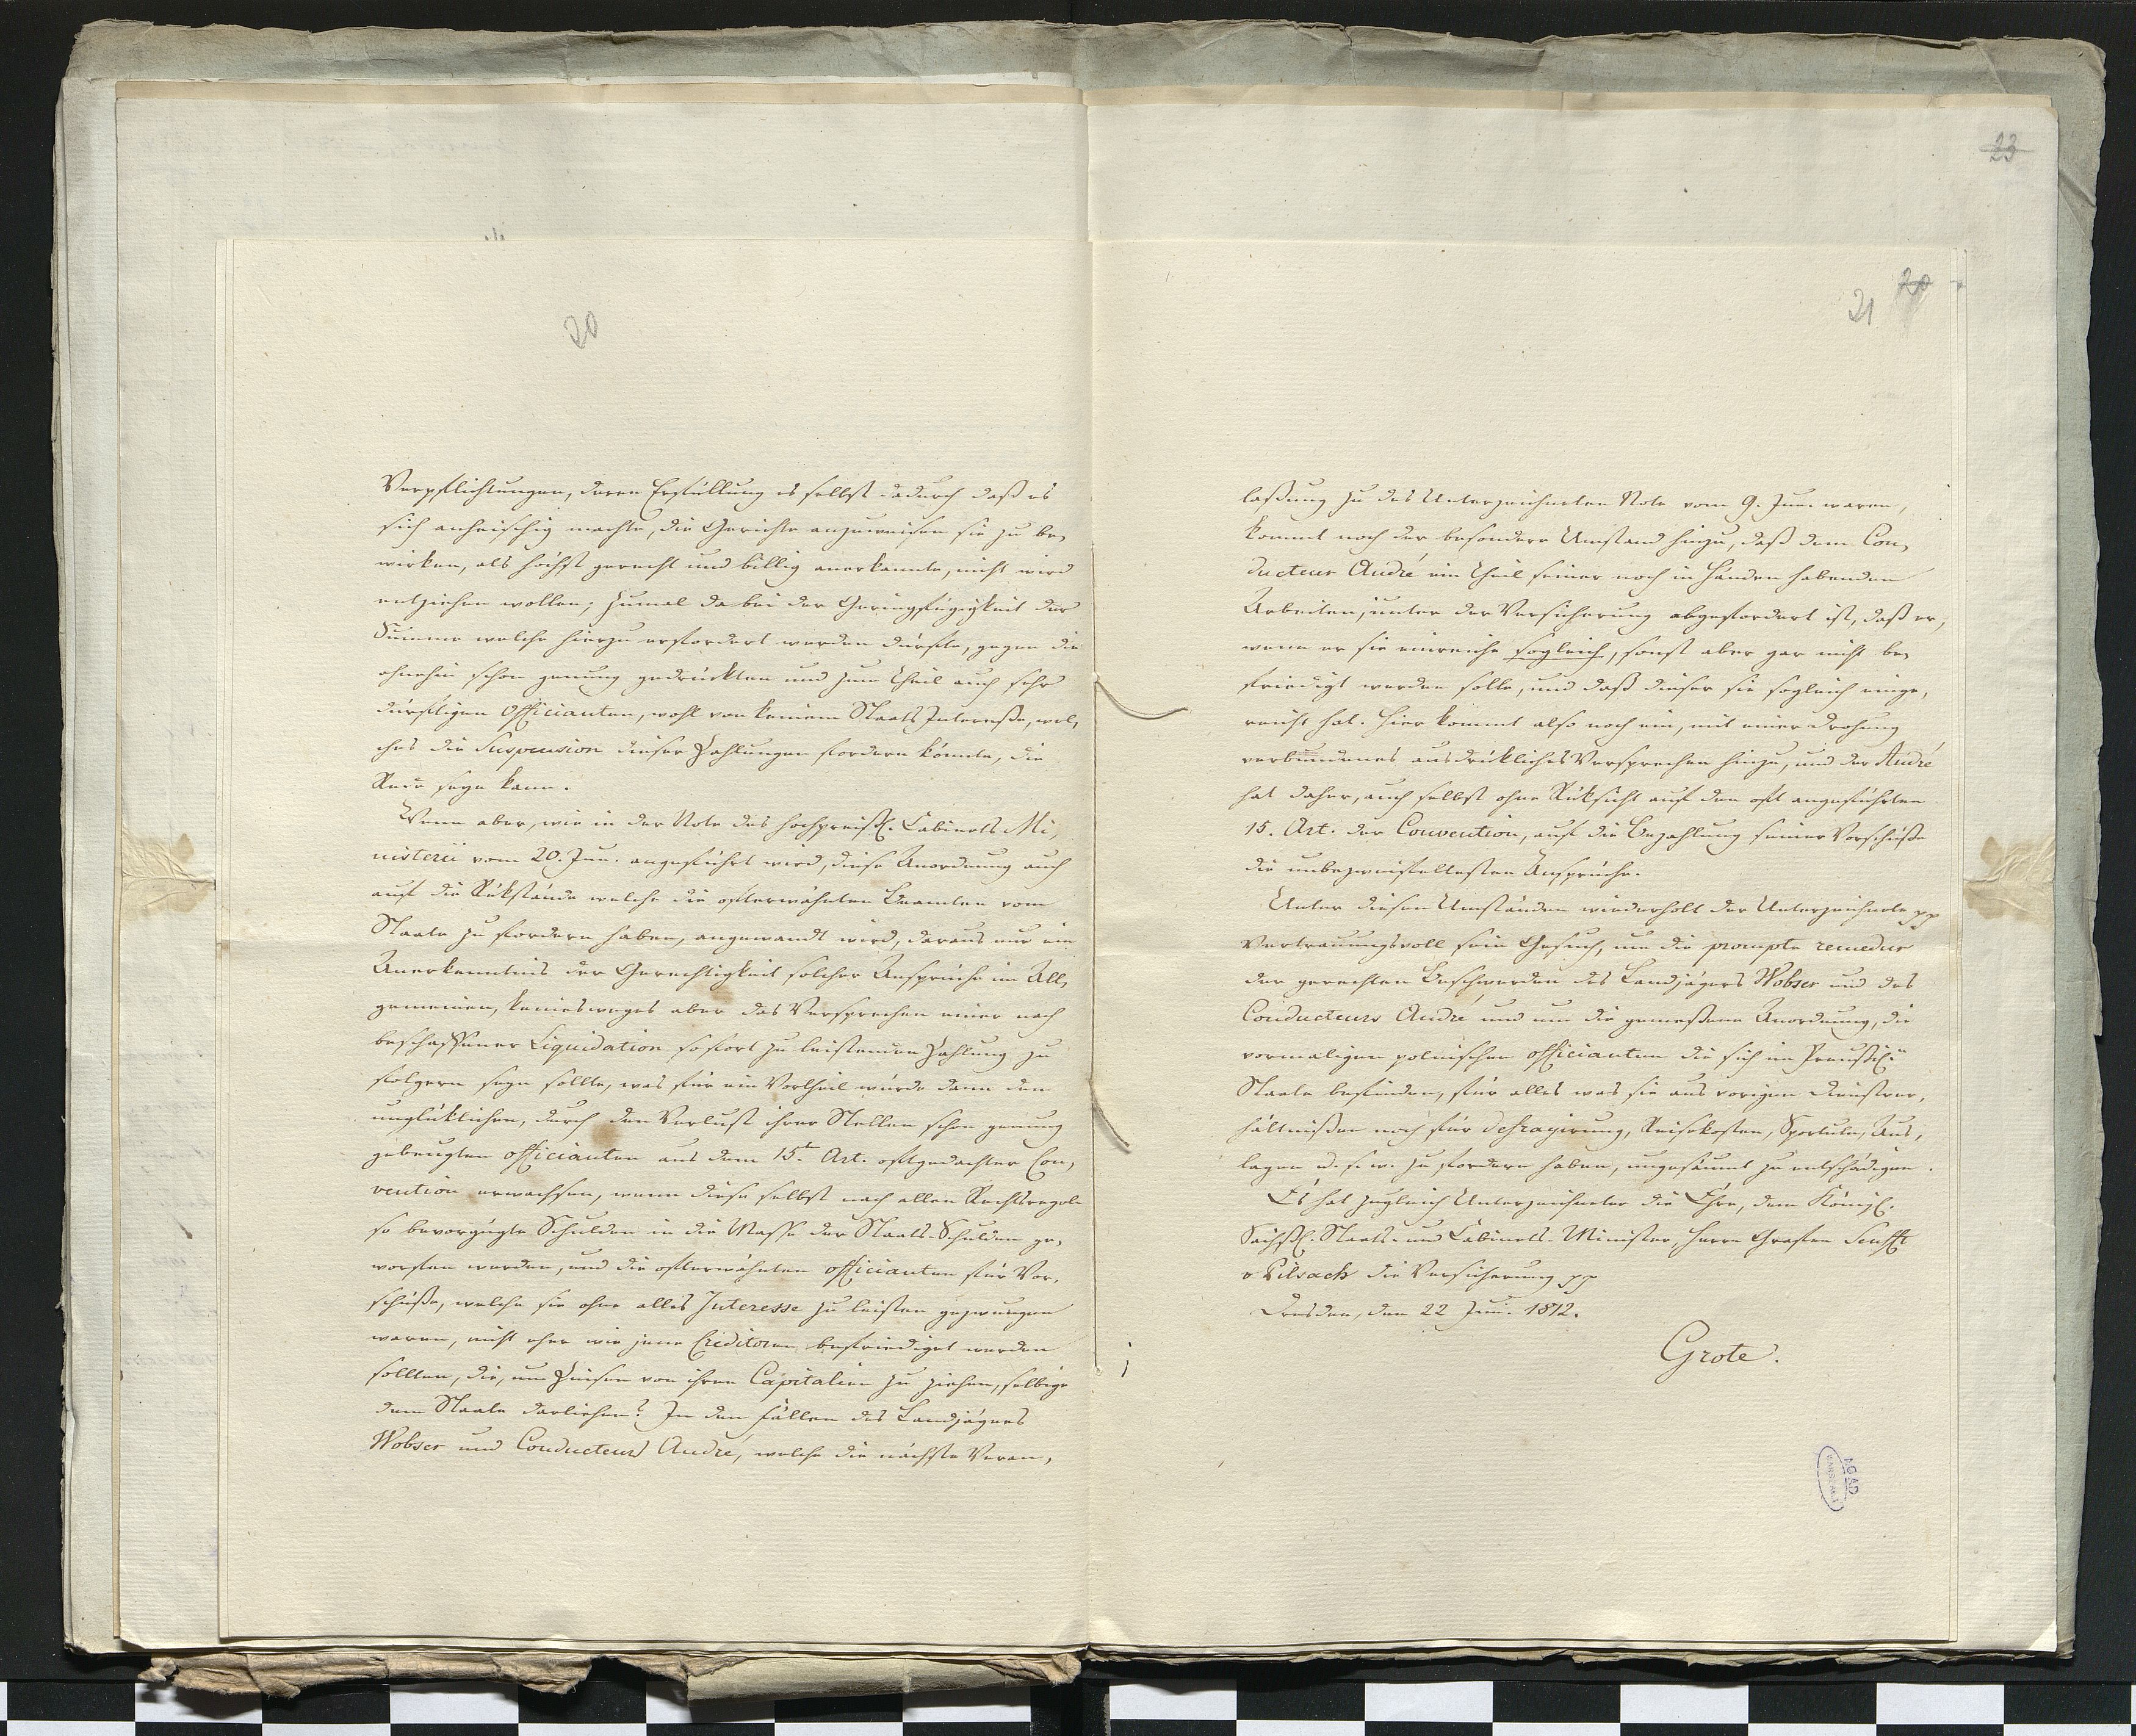 20
Verpflichtungen, deren Erfüllung es selbst dadurch daß es
sich anheischig machte, die Gerichte anzuweisen sie zu be-
wirken, als höchst gerecht und billig anerkannte, nicht wird
entziehen wollen; zumal da bei der Geringfügigkeit der
Summe welche hierzu erfordert werden dürfte, gegen die
ohnehin schon genung gedrückten und zum Theil auch sehr
dürftigen Officianten, wohl von keinem Staats Interesse, wel-
ches die Suspension dieser Zahlungen fordern könnte, die
Rede seyn kann.
Wenn aber, wie in der Note des hochpreißl. Cabinets Mi-
nisterii vom 20. Jun. angeführt wird, diese Anordnung auch
auf die Rükstände welche die ofterwähnten Beamten vom
Staate zu fordern haben, angewandt wird, daraus nur ein
Anerkenntnis der Gerechtigkeit solcher Ansprüche im All-
gemeinen, keinesweges aber das Versprechen einer nach
beschaffener Liquidation sofort zu leistenden Zahlung zu
folgern seyn sollte, was für ein Vortheil würde dann den
unglüklichen, durch den Verlust ihrer Stellen schon genung
gebeugten officianten aus dem 15t. Art. oftgedachter Con-
vention erwachsen, wenn diese selbst nach allen Rechtsregeln
so bevorzugte Schulden in die Masse der Staats-Schulden ge-
worfen werden, und die ofterwähnten officianten für Vor-
schüße, welche sie ohne alles Interesse zu leisten gezwungen
waren, nicht eher wie jene Creditoren befriediget werden
sollten, die, um Zinsen von ihren Capitalien zu ziehen, selbige
dem Staate darliehen? In den Fällen des Landjägers
Wobser und Conducteurs André, welche die nächste Veran-
23
20
21
laßung zu des Unterzeichneten Note vom 9. Jun. waren,
kommt noch der besondere Umstand hinzu, daß dem Con-
ducteur André ein Theil seiner noch in Händen habenden
Arbeiten, unter der Versicherung abgefordert ist, daß er,
wenn er sie einreiche sogleich, sonst aber gar nicht be-
friedigt werden solle, und daß dieser sie sogleich einge-
reicht hat. Hier kommt also noch ein, mit einer Drohung
verbundenes ausdrükliches Versprechen hinzu, und der André
hat daher, auch selbst ohne Rüksicht auf den oft angeführten
15. Art. der Convention, auf die Bezahlung seiner Vorschüße
die unbezweifeltesten Ansprüche.
Unter diesen Umständen wiederholt der Unterzeichnete pp
vertrauungsvoll sein Gesuch, um die prompte remedur
der gerechten Beschwerden des Landjägers Wobser und des
Conducteurs André und um die gemeßene Anordnung, die
vormaligen polnischen officianten die sich im Preußisch.
Staate befinden, für alles was sie aus vorigen Dienstver-
hältnißen noch für Defrayirung, Reisekosten, Sportuln, Aus-
lagen u. s. w. zu fordern haben, ungesäumt zu entschädigen.
Es hat zugleich Unterzeichneter die Ehre, dem Königl.
Sächßl. Staats- und Cabinets-Minister, Herrn Grafen Senfft
v Pilsach die Versicherung pp
Dresden, den 22 Jun. 1812.
Grote.
AGAD
WARSZAWA